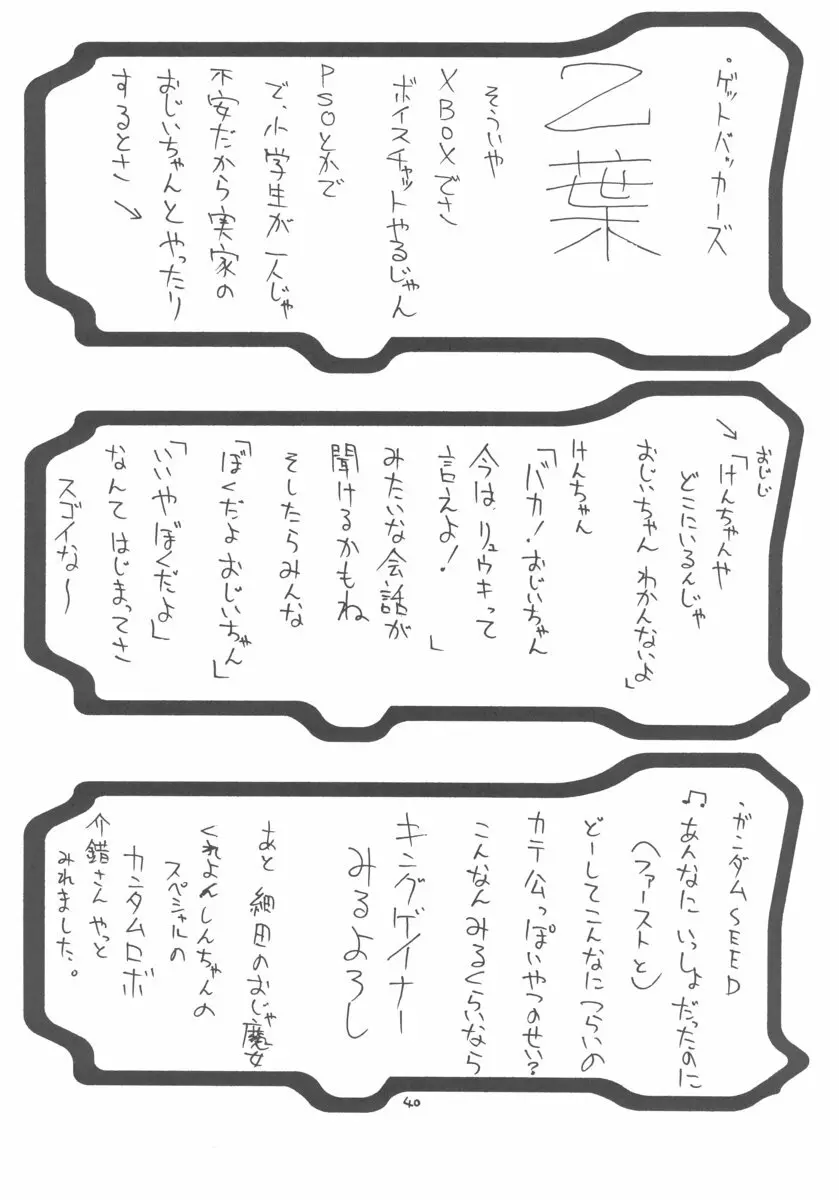 ・ゲットバッカーズ
乙葉
そういや
XBOXでさ
ボイスチャットやるじゃん
PSOとかで
で、小学生が一人じゃ
不安だから実家の
おじいちゃんとやったり
するとさ→
おじじ
→「けんちゃんや
どこにいるんじゃ
おじいちゃんわかんないよ」
けんちゃん
「バカ!おじいちゃん
今は、リュウキって
言えよ!」
みたいな会話が
聞けるかもね
そしたらみんな
「ぼくだよおじいちゃん」
「いいやぼくだよ」
なんてはじまってさ
スゴイな〜
・ガンダムSEED
♫あんなにいっしょだったのに
(ファーストと)
どーしてこんなにつらいの
カテ公っぽいやつのせい?
こんなんみるくらいなら
キングゲイナー
みるよろし
あと細田のおじゃ魔女
くれよんしんちゃんの
スペシャルの
カンタムロボ
介錯さんやっと
みれました。
40